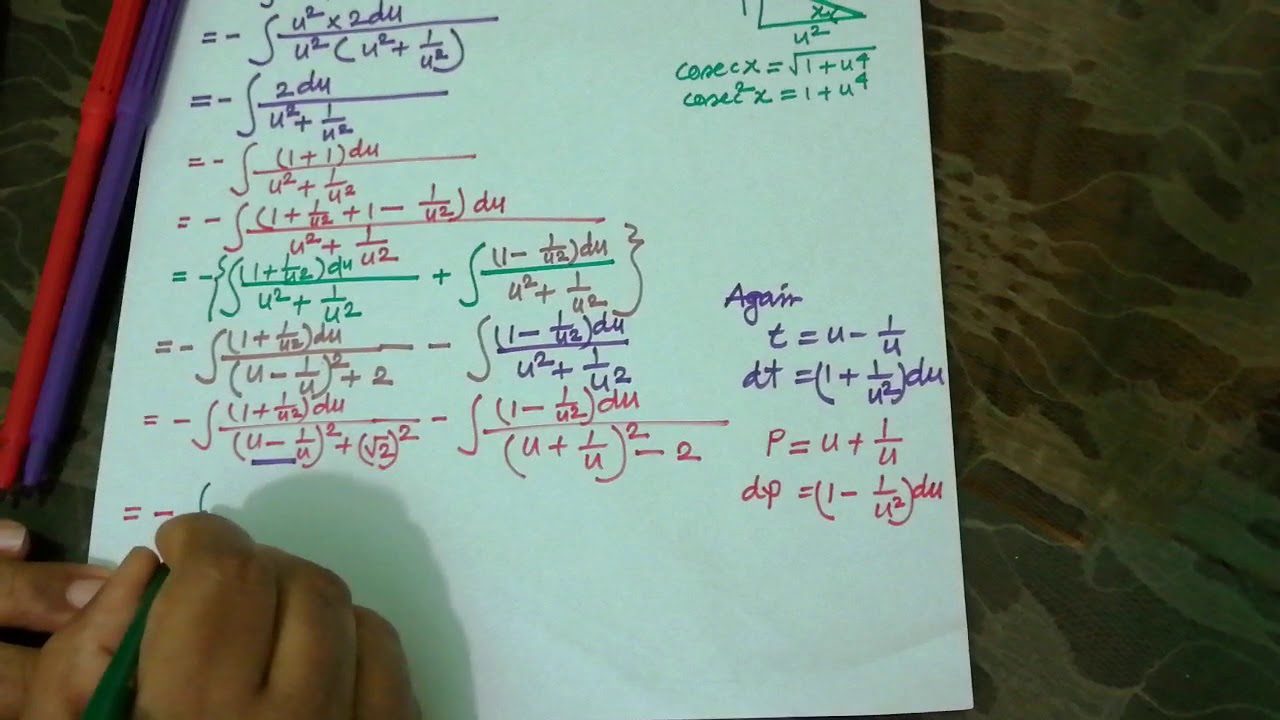 = - ∫ u² × 2du / u² (u² + 1/u²)
= - ∫ 2du / u² + 1/u²
= - ∫ (1 + 1)du / u² + 1/u²
= - ∫ (1 + 1/u² + 1 - 1/u²) du / u² + 1/u²
= - { ∫ (1 + 1/u²) du / u² + 1/u² + ∫ (1 - 1/u²) du / u² + 1/u² }
= - ∫ (1 + 1/u²) du / (u - 1/u)² + 2 - ∫ (1 - 1/u²) du / u² + 1/u²
= - ∫ (1 + 1/u²) du / (u - 1/u)² + (√2)² - ∫ (1 - 1/u²) du / (u + 1/u)² - 2
= -
1
x
u²
cosecx = √1 + u⁴
cosec²x = 1 + u⁴
Again
t = u - 1/u
dt = (1 + 1/u²) du
P = u + 1/u
dp = (1 - 1/u²) du